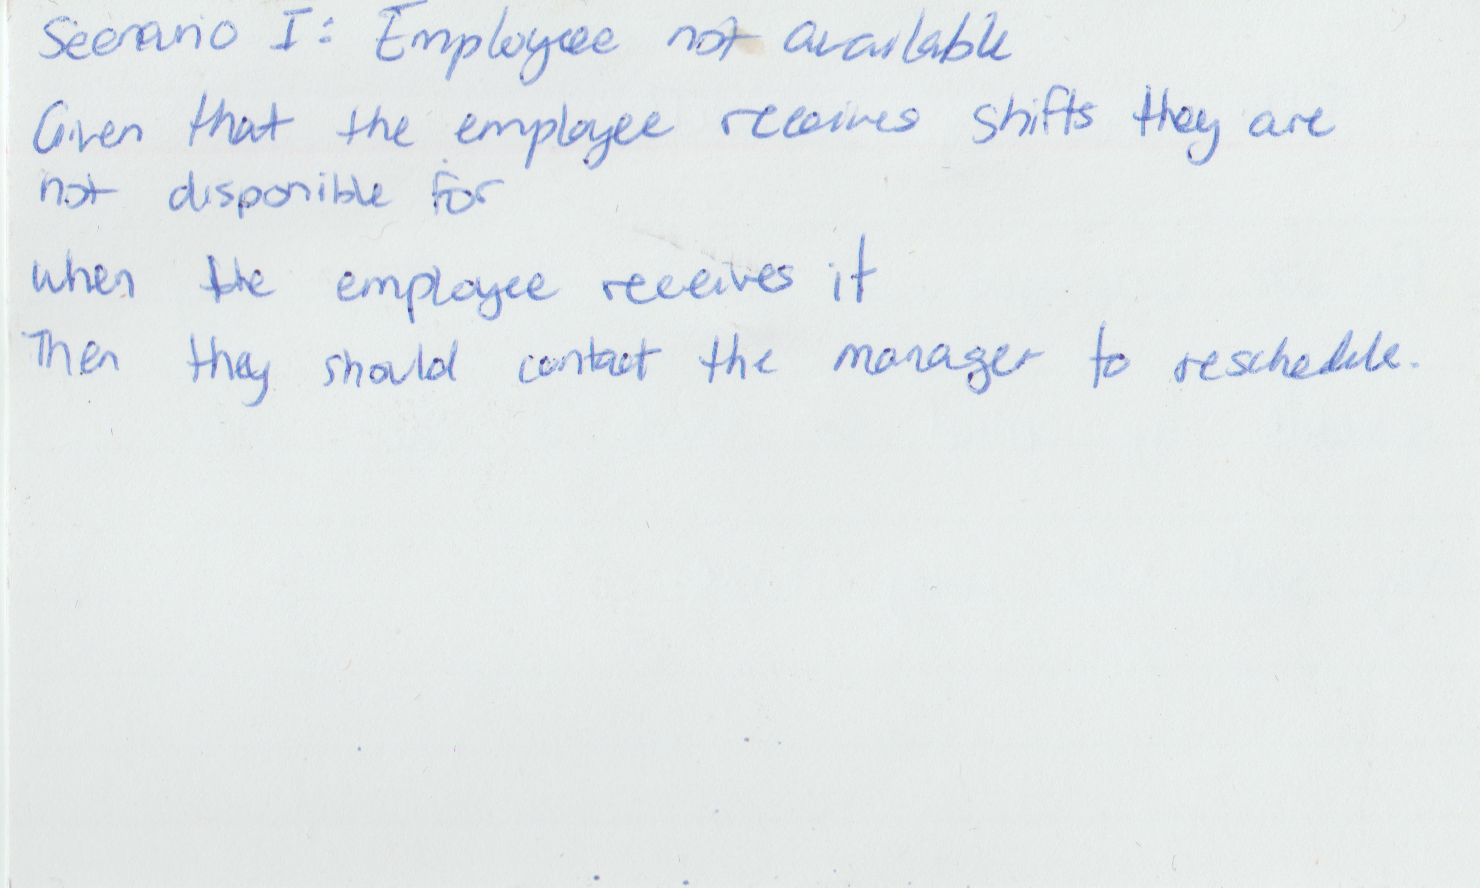 Scenario I: Employee not available
Given that the employee receives shifts they are
not disponible for
when the employee receives it
Then they should contact the manager to reschedule.